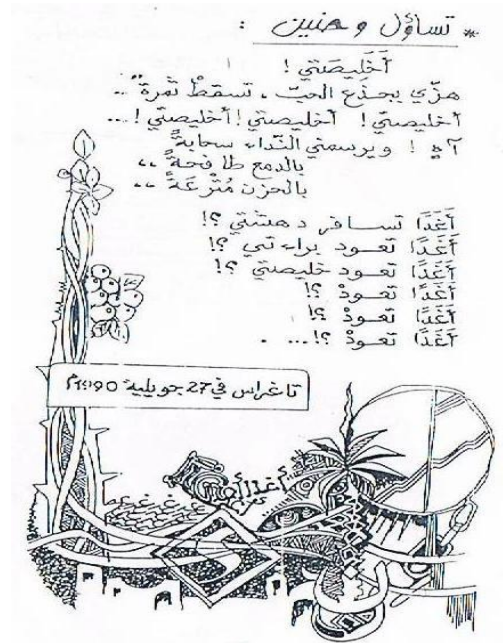 * تساؤل و حنين :
أَخَلِيصَتي !
هزّي بجذع الحبّ ، تسقطْ ثمرة" ..
أخليصتي ! أخليصتي ! أخليصتي ! ...
آهٍ ! ويرسمني النّداء سحابةً
بالدمع طافحةً ،،
بالحزن مُتْرعَةً ،،
أَغَدًا تسافر دهشتي ؟!
أَغَدًا تعود براءتي ؟!
أَغَدًا تعود خليصتي ؟!
أَغَدًا تعودْ ؟!
أَغَدًا تعودْ ؟!
أَغَدًا تعودْ ؟! ... .
تاغراس في 27 جويلية 1990م
أغدًا